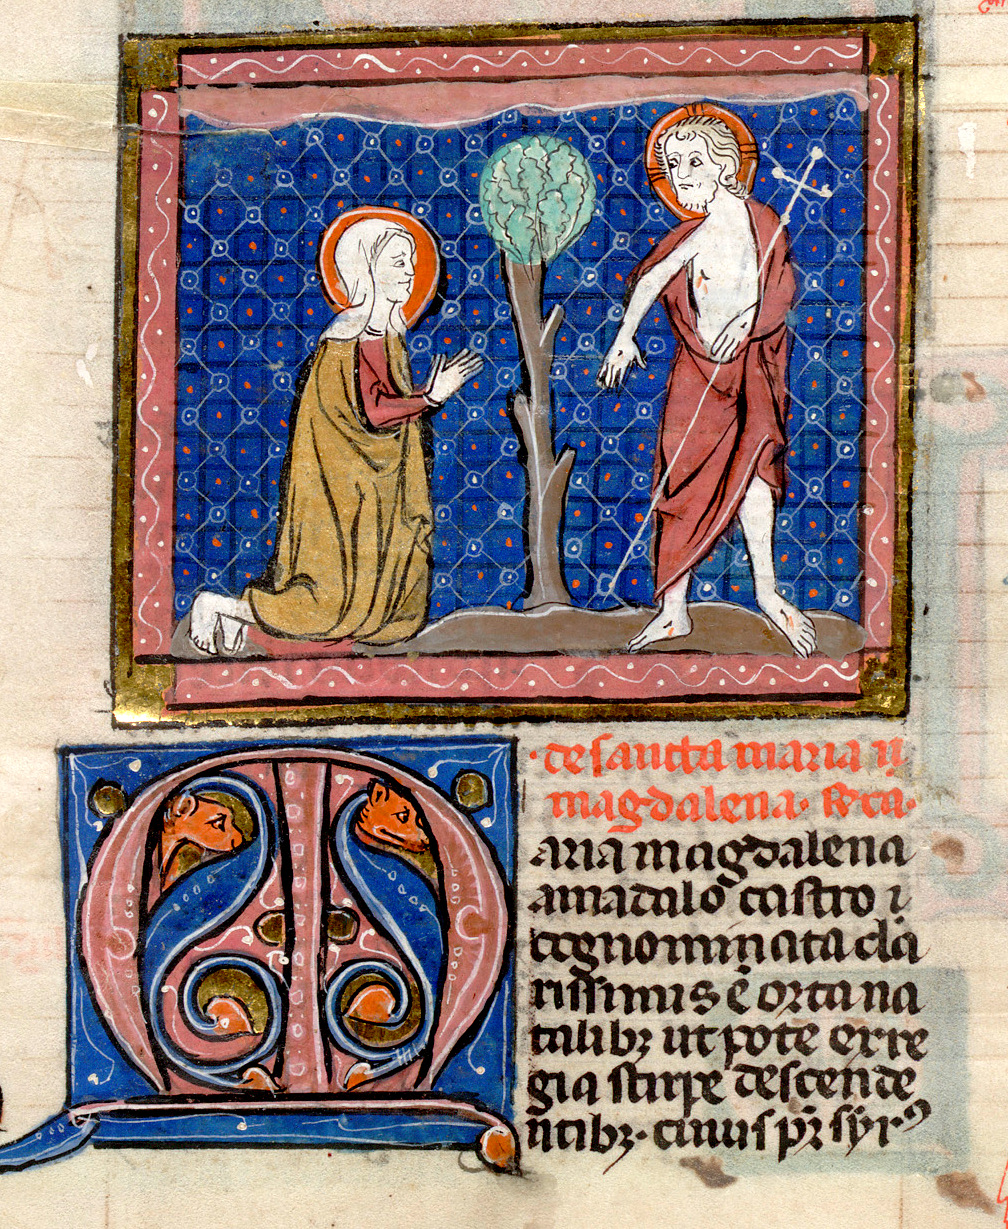 de sancta maria
magdalena.
aria magdalena
a magdalo castro
cognominata cla
rissimis ē orta na
talibꝫ ut pote ex re
gia stirpe descende
ntibꝫ. cuius pr̄ syrꝰ